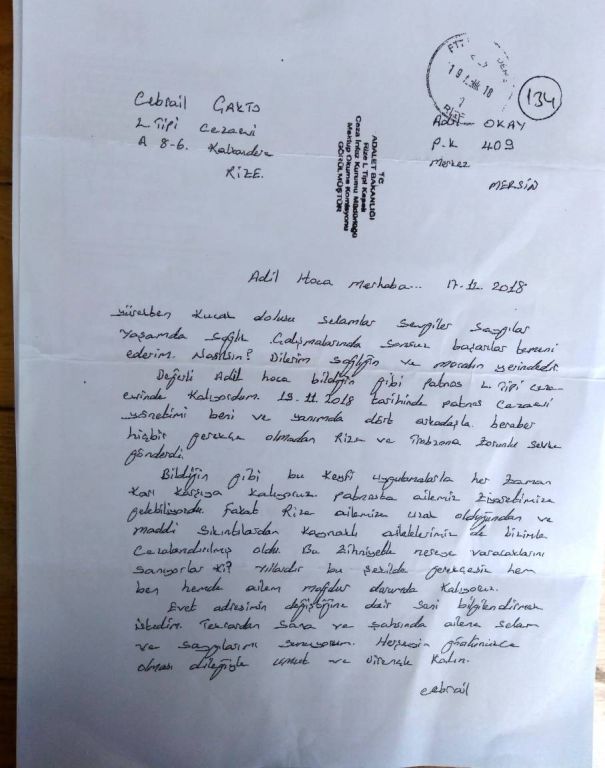 134
Cebrail GAKTO
L Tipi Cezaevi
A 8-6. Kalkandere
RİZE.
T.C.
ADALET BAKANLIĞI
Rize L Tipi Kapalı
Ceza İnfaz Kurumu Müdürlüğü
Mektup Okuma Komisyonu
GÖRÜLMÜŞTÜR
Adil OKAY
P.K 409
Merkez
MERSİN
Adil Hoca Merhaba... 17.11.2018
yürekten kucak dolusu selamlar sevgiler saygılar
Yaşamda sağlık Çalışmalarında sonsuz başarılar temenni
ederim. Nasılsın? Dilerim sağlığın ve moralin yerindedir.
Değerli Adil hoca bildiğin gibi Patnos L Tipi ceza-
evinde kalıyordum. 13.11.2018 tarihinde patnos Cezaevi
yönetimi beni ve yanımda dört arkadaşla beraber
hiçbir gerekçe olmadan Rize ve Trabzona zorunlu sevke
gönderdi.
Bildiğin gibi bu keyfi uygulamalarla her zaman
karşı karşıya kalıyoruz. patnosta ailemiz ziyaretimize
gelebiliyordu. Fakat Rize ailemize uzak olduğundan ve
maddi sıkıntılardan kaynaklı ailelerimiz de bizimle
Cezalandırılmış oldu. Bu zihniyetle nereye varacaklarını
sanıyorlar ki? Yıllardır bu şekilde gerekçesiz hem
ben hemde ailem mağdur durumda kalıyoruz.
Evet adresimin değiştiğine dair seni bilgilendirmek
istedim. Tekrardan sana ve şahsında ailene selam
ve saygılarımı sunuyorum. Herşeyin gönlünüzce
olması dileğiyle umut ve dirençle kalın.
cebrail